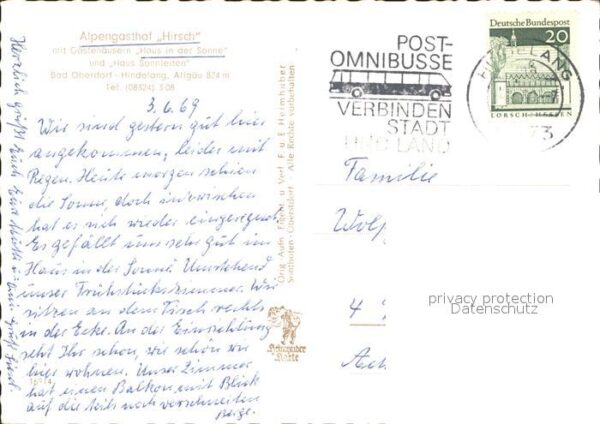 Alpengasthof „Hirsch"
mit Gästehäusern „Haus in der Sonne"
und „Haus Sonnleiten"
Bad Oberdorf - Hindelang, Allgäu 824 m
Tel. (08324) 308
3.6.69
Wir sind gestern gut hier
angekommen, leider mit
Regen. Heute morgen schien
die Sonne, doch inzwischen
hat es sich wieder eingeregnet.
Es gefällt uns sehr gut im
Haus in der Sonne. Umstehend
unser Frühstückszimmer. Wir
sitzen an dem Tisch rechts
in der Ecke. An der Einrichtung
seht Ihr schon, wie schön wir
hier wohnen. Unser Zimmer
hat einen Balkon mit Blick
auf die teils noch verschneiten
Berge.
Herzlich grüßt Euch Eure Mutti u.
16914
Orig. Aufn. Eigent. u. Verl. F. u. E. Heimhuber
Sonthofen - Oberstdorf - Alle Rechte vorbehalten
Heimhuber
Karte
POST-
OMNIBUSSE
VERBINDEN
STADT
UND LAND
HINDELANG
73
Deutsche Bundespost
20
LORSCH/HESSEN
Familie
Wolf
4
privacy protection
Datenschutz